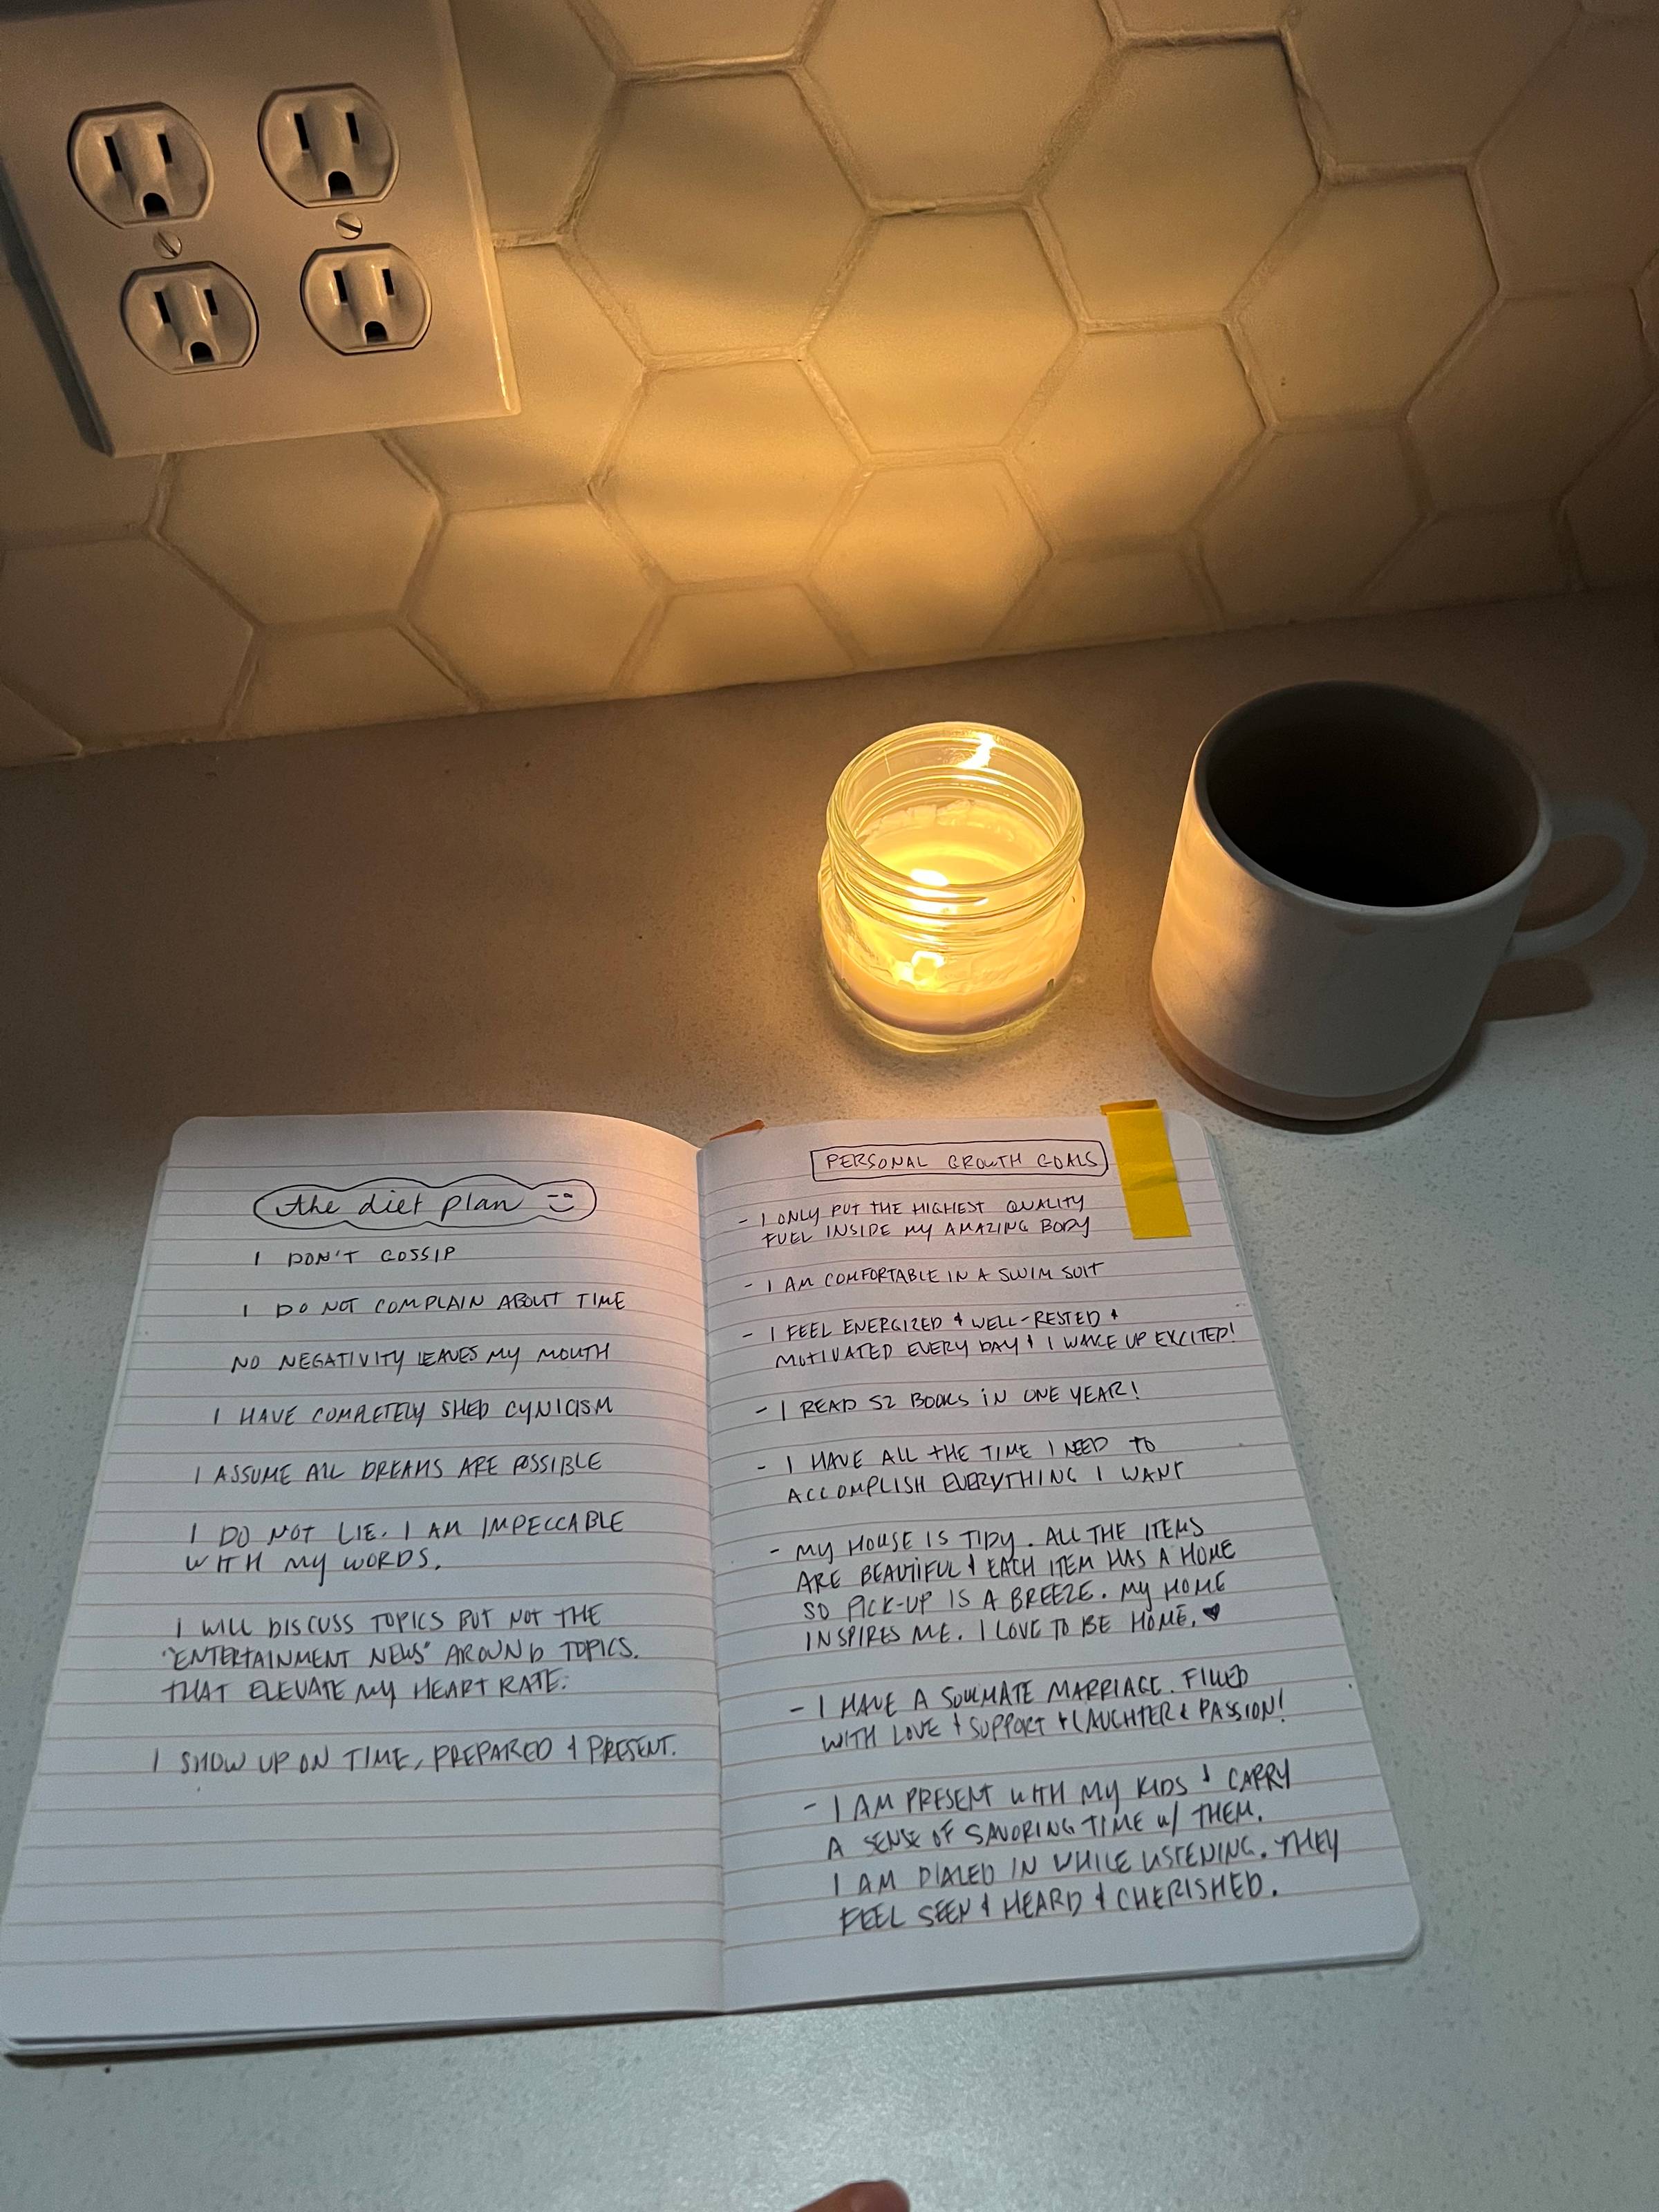 the diet plan
I DON'T GOSSIP
I DO NOT COMPLAIN ABOUT TIME
NO NEGATIVITY LEAVES MY MOUTH
I HAVE COMPLETELY SHED CYNICISM
I ASSUME ALL DREAMS ARE POSSIBLE
I DO NOT LIE. I AM IMPECCABLE
WITH MY WORDS.
I WILL DISCUSS TOPICS BUT NOT THE
"ENTERTAINMENT NEWS" AROUND TOPICS.
THAT ELEVATE MY HEART RATE.
I SHOW UP ON TIME, PREPARED & PRESENT.
PERSONAL GROWTH GOALS
- I ONLY PUT THE HIGHEST QUALITY
FUEL INSIDE MY AMAZING BODY
- I AM COMFORTABLE IN A SWIM SUIT
- I FEEL ENERGIZED & WELL-RESTED &
MOTIVATED EVERY DAY & I WAKE UP EXCITED!
- I READ 52 BOOKS IN ONE YEAR!
- I HAVE ALL THE TIME I NEED TO
ACCOMPLISH EVERYTHING I WANT
- MY HOUSE IS TIDY. ALL THE ITEMS
ARE BEAUTIFUL & EACH ITEM HAS A HOME
SO PICK-UP IS A BREEZE. MY HOME
INSPIRES ME. I LOVE TO BE HOME. ♥
- I HAVE A SOULMATE MARRIAGE. FILLED
WITH LOVE & SUPPORT & LAUGHTER & PASSION!
- I AM PRESENT WITH MY KIDS & CARRY
A SENSE OF SAVORING TIME W/ THEM.
I AM DIALED IN WHILE LISTENING. THEY
FEEL SEEN & HEARD & CHERISHED.